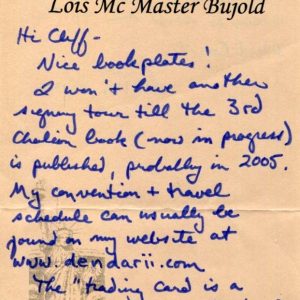 Lois Mc Master Bujold
Hi Cliff-
Nice bookplates!
I won't have another
signing tour till the 3rd
Chalion book (now in progress)
is published, probably in 2005.
My convention + travel
schedule can usually be
found on my website at
www.dendarii.com
The "trading card is a